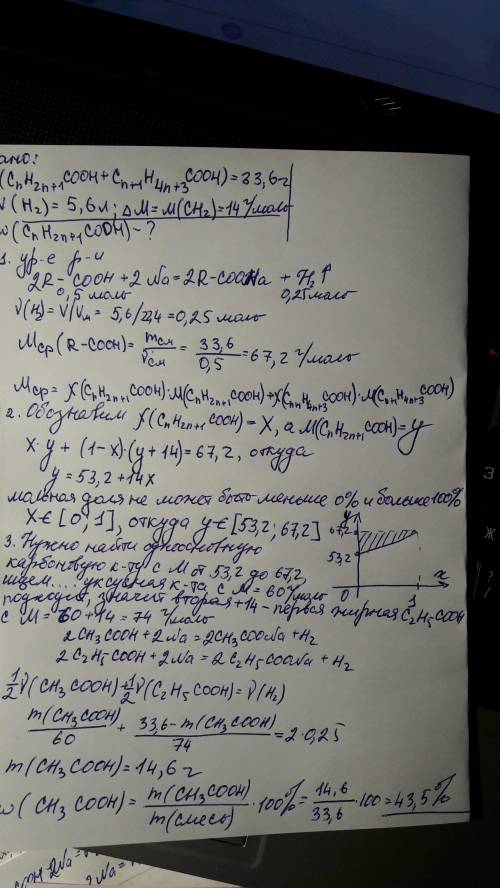 ано:
(CnH2n+1COOH + Cn+1H4n+3COOH) = 33,6 г
V(H2) = 5,6 л; ΔM = M(CH2) = 14 г/моль
w(CnH2n+1COOH) - ?
1. ур-е р-и
2R-COOH + 2Na = 2R-COONa + H2↑
0,5 моль 0,25 моль
ν(H2) = V/Vм = 5,6/22,4 = 0,25 моль
Mср(R-COOH) = mсм/νсм = 33,6/0,5 = 67,2 г/моль
Mср = χ(CnH2n+1COOH)·M(CnH2n+1COOH) + χ(Cn+1H4n+3COOH)·M(CnH4n+3COOH)
2. Обозначим χ(CnH2n+1COOH) = X, а M(CnH2n+1COOH) = y
X·y + (1-x)(y+14) = 67,2, откуда
y = 53,2 + 14x
мольная доля не может быть меньше 0% и больше 100%
X ∈ [0; 1], откуда y ∈ [53,2; 67,2]
y
67,2
53,2
0
1
x
3. Нужно найти одноосновную
карбоновую к-ту с M от 53,2 до 67,2,
ищем... уксусная к-та с M = 60 г/моль
подходит, значит вторая +14 - первая жирная C2H5COOH
с M = 60 + 14 = 74 г/моль
2CH3COOH + 2Na = 2CH3COONa + H2
2C2H5COOH + 2Na = 2C2H5COONa + H2
1/2 ν(CH3COOH) + 1/2 ν(C2H5COOH) = ν(H2)
m(CH3COOH)/60 + 33,6 - m(CH3COOH)/74 = 2·0,25
m(CH3COOH) = 14,6 г
w(CH3COOH) = m(CH3COOH)/m(смесь) · 100% = 14,6/33,6 · 100 = 43,5%
З
Ж